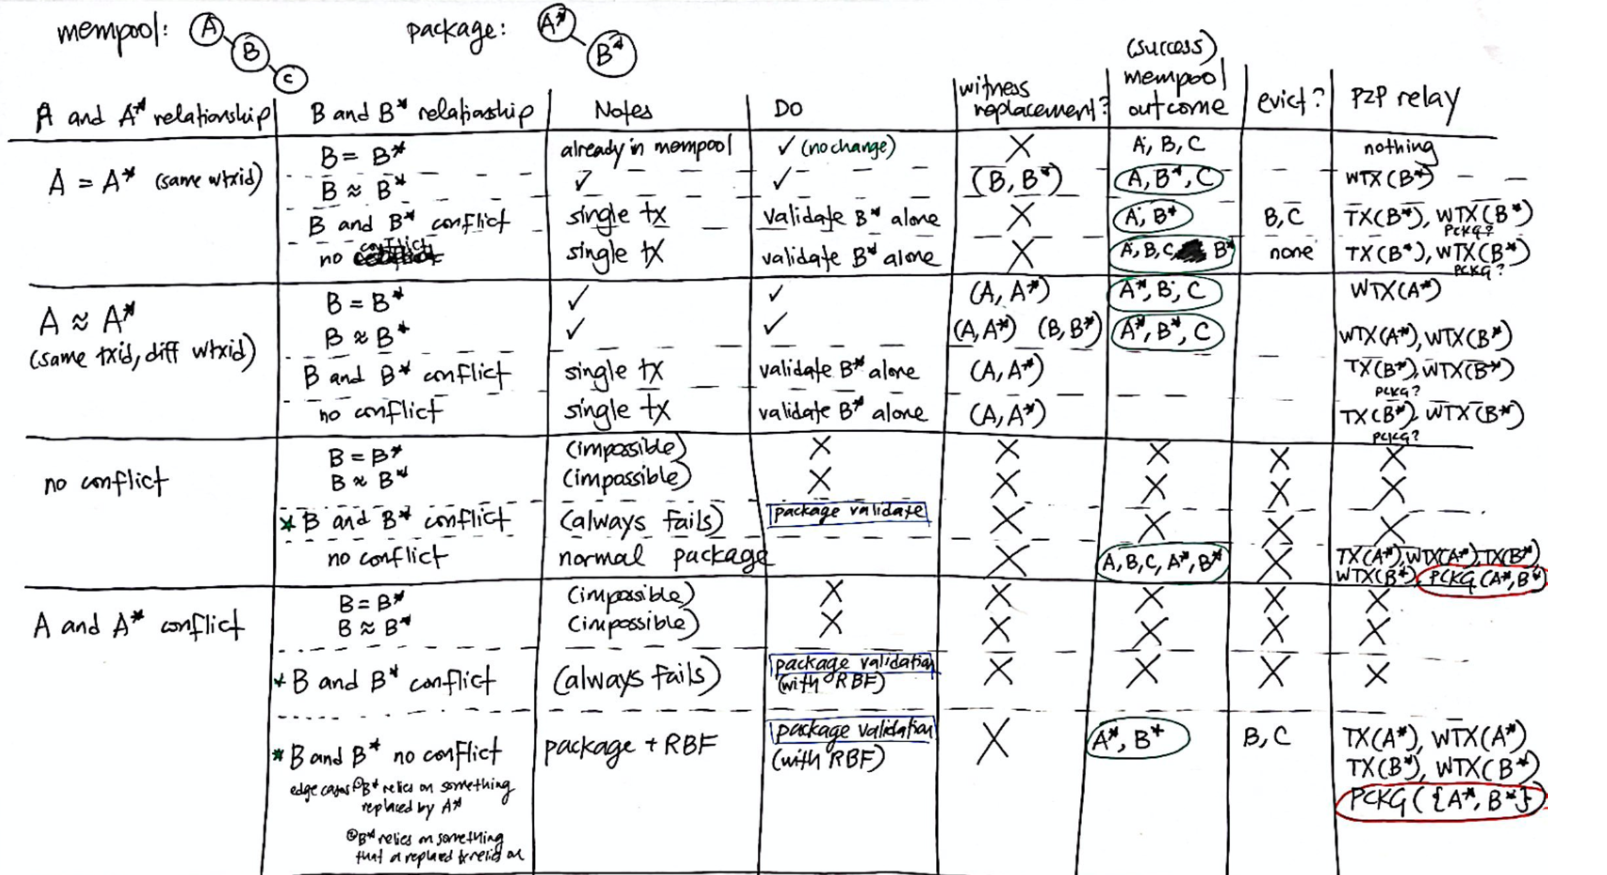 mempool: A B C package: A* B*
A and A* relationship | B and B* relationship | Notes | Do | witness replacement? | (success) mempool outcome | evict? | P2P relay
A = A* (same wtxid) | B = B* | already in mempool | ✓ (no change) | X | A, B, C | | nothing
B ≈ B* | ✓ | ✓ | (B, B*) | A, B*, C | | WTX(B*)
B and B* conflict | single tx | validate B* alone | X | A, B* | B, C | TX(B*), WTX(B*) PCKG?
no conflict | single tx | validate B* alone | X | A, B, C, B* | none | TX(B*), WTX(B*) PCKG?
A ≈ A* (same txid, diff wtxid) | B = B* | ✓ | ✓ | (A, A*) | A*, B, C | | WTX(A*)
B ≈ B* | ✓ | ✓ | (A, A*) (B, B*) | A*, B*, C | | WTX(A*), WTX(B*)
B and B* conflict | single tx | validate B* alone | (A, A*) | | | TX(B*), WTX(B*) PCKG?
no conflict | single tx | validate B* alone | (A, A*) | | | TX(B*), WTX(B*) PCKG?
no conflict | B = B* | (impossible) | X | X | X | X | X
B ≈ B* | (impossible) | X | X | X | X | X
* B and B* conflict | (always fails) | package validate | X | X | X | X
no conflict | normal package | | X | A, B, C, A*, B* | X | TX(A*), WTX(A*), TX(B*), WTX(B*), PCKG(A*, B*)
A and A* conflict | B = B* | (impossible) | X | X | X | X | X
B ≈ B* | (impossible) | X | X | X | X | X
* B and B* conflict | (always fails) | package validation (with RBF) | X | X | X | X
* B and B* no conflict | package + RBF | package validation (with RBF) | X | A*, B* | B, C | TX(A*), WTX(A*) TX(B*), WTX(B*) PCKG({A*, B*})
edge cases ① B* relies on something
replaced by A*
② B* relies on something
that a replaced